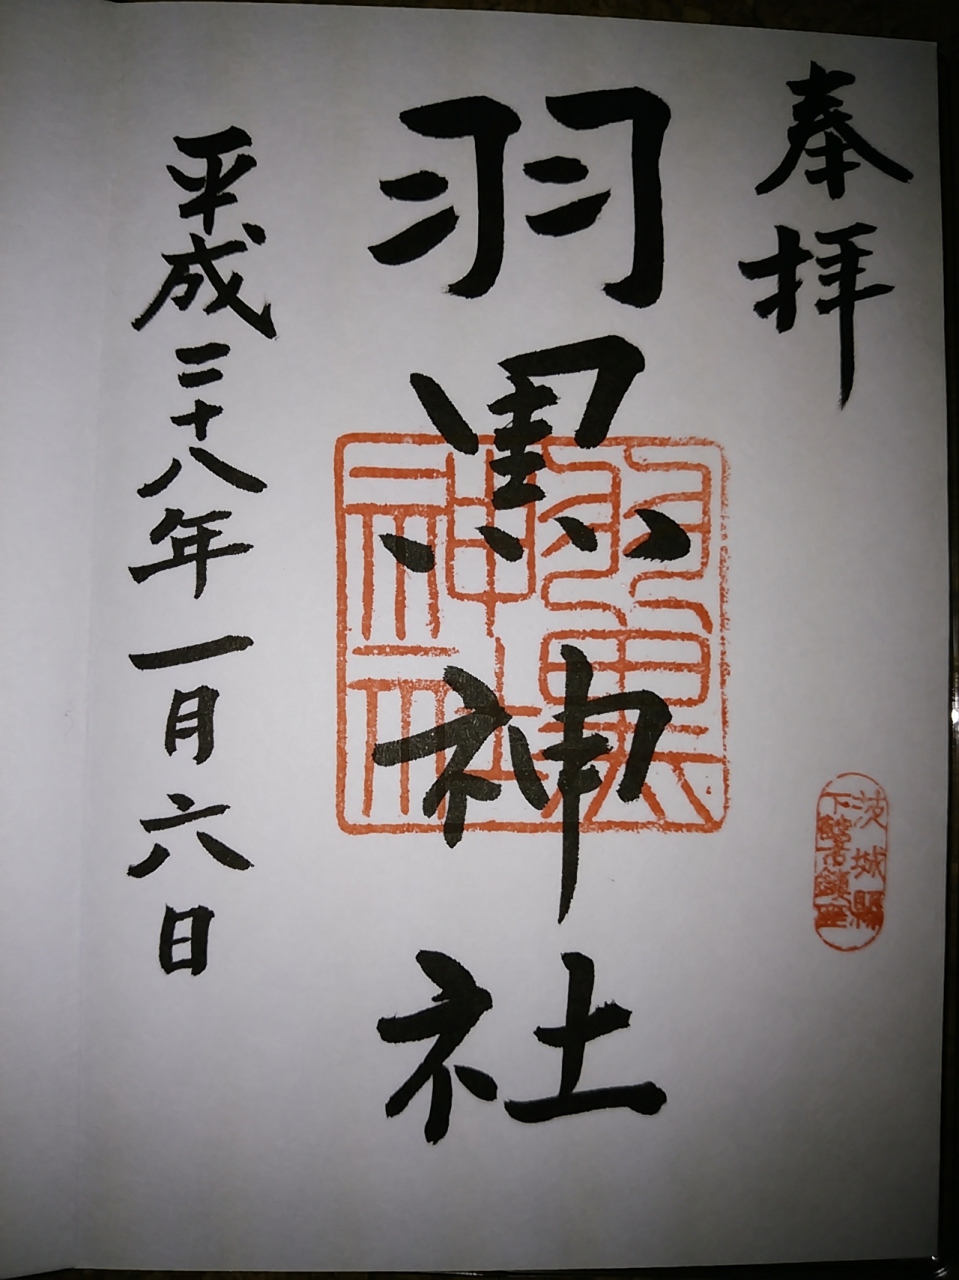 奉拝
茨城縣
下館市鎮座
羽黒神社
羽黒
神社
平成二十八年一月六日